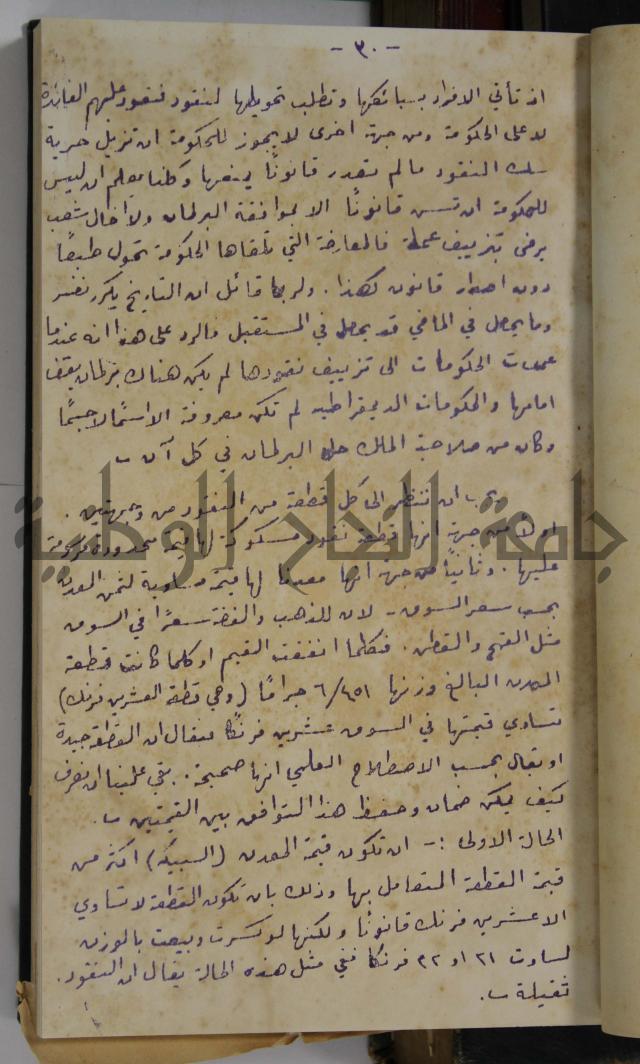 - ٣٠ -
اذ تأتي الافراد بسبائكها وتطلب تحويلها لنقود فتعود عليهم الفائدة
لا على الحكومة ومن جهة اخرى لا يجوز للحكومة ان تزيل حرية
سك النقود ما لم تصدر قانونًا يمنعها وكلنا معلم ان ليس
للحكومة ان تسن قانونًا الا بموافقة البرلمان ولا اخال شعب
يرضى بتزييف عملة فالمعارضة التي تلقاها الحكومة تحول طبعًا
دون اصدار قانون كهذا. ولربما قائل ان التاريخ يكرر نفسه
وما يحصل في الماضي قد يحصل في المستقبل فالرد على هذا انه عندما
عمدت الحكومات الى تزييف نقودها لم يكن هناك برلمان يقف
امامها والحكومات الديمقراطية لم تكن معروفة الا اسمًا لا جسمًا
وكان من صلاحية الملك حل البرلمان في كل آن
يجب ان ننظر الى كل قطعة من النقود من وجهتين.
اولًا من جهة انها قطعة نقود مسكوكة لها قيمة محدودة مرسومة
عليها. وثانيًا من جهة انها معدنا لها قيمة مساوية لثمن المعدن
بحسب سعر السوق - لان للذهب والفضة سعرًا في السوق
مثل القمح والقطن. فكلما اتفقت القيم او كلما كانت قطعة
المعدن البالغ وزنها ٦/٤٥١ جرامًا (وهي قطعة العشرين فرنك)
تساوي قيمتها في السوق عشرين فرنكًا فيقال ان القطعة جيدة
او يقال بحسب الاصطلاح العلمي انها صحيحة. بقي علينا ان نعرف
كيف يمكن ضمان وحفظ هذا التوافق بين القيمتين
الحالة الاولى :- ان تكون قيمة المعدن (السبيكة) اكثر من
قيمة القطعة المتعامل بها وذلك بان تكون القطعة لا تساوي
الا عشرين فرنك قانونًا ولكنها لو كسرت وبيعت بالوزن
لساوت ٢١ او ٢٢ فرنكًا ففي مثل هذه الحالة يقال ان النقود.
ثقيلة
جامعة النجاح الوطنية